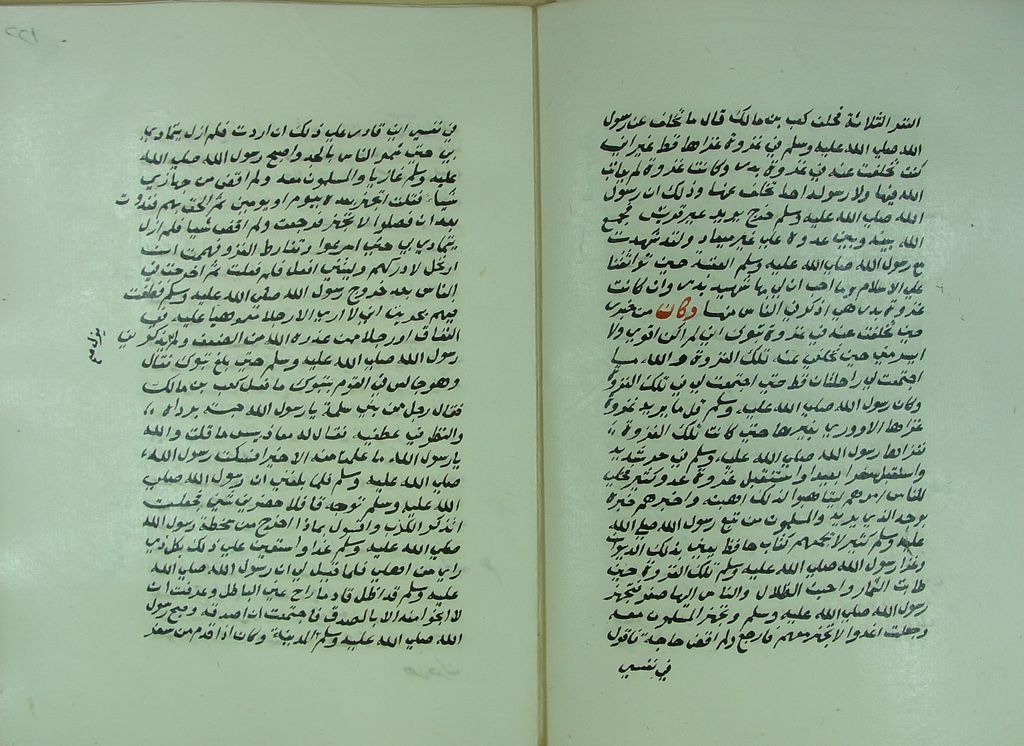 النفر الثلاثة فحلف كعب بن مالك قال ما تخلف عن رسول
الله صلى الله عليه وسلم في غزوة غزاها قط غير اني
كنت تخلفت عنه في غزوة بدر وكانت غزوة لم يعاتب
الله فيها ولا رسوله احدا تخلف عنها وذلك ان رسول
الله صلى الله عليه وسلم خرج يريد عير قريش فجمع
الله بينه وبين عدوه على غير ميعاد ولقد شهدت
مع رسول الله صلى الله عليه وسلم العقبة حين تواثقنا
على الاسلام وما احب ان لي بها شهيد بدر وان كانت
غزوة بدر هي اذكر في الناس منها وكان من خبري
حين تخلفت عنه في غزوة تبوك اني لم اكن اقوى ولا
ايسر مني حين تخلفي عنه تلك الغزوة والله ما
اجتمعت لي راحلتان قط حتى اجتمعت لي في تلك الغزوة
وكان رسول الله صلى الله عليه وسلم قل ما يريد غزوة
غزاها الا وورى بغيرها حتى كانت تلك الغزوة
فغزاها رسول الله صلى الله عليه وسلم في حر شديد
واستقبل سفرا بعيدا واستقبل غزوة عدو كثير فجلى
للناس امرهم ليتاهبوا لذلك اهبته واخبرهم خبره
بوجه الذي يريد والمسلمون من تبع رسول الله صلى الله
عليه وسلم كثير لا يجمعهم كتاب حافظ يعني بذلك الديوان
وغزا رسول الله صلى الله عليه وسلم تلك الغزوة حين
طابت الثمار واحبت الظلال والناس اليها صعر فتجهز
رسول الله صلى الله عليه وسلم وتجهز المسلمون معه
وجعلت اغدوا لاتجهز معهم فارجع ولم اقض حاجة فاقول
في نفسي
في نفسي اني قادر على ذلك ان اردت فلم ازل يتمادى
بي حتى شمر الناس بالجد واصبح رسول الله صلى الله
عليه وسلم غازيا والمسلمون معه ولم اقض من جهازي
شيا فقلت اتجهز بعده بيوم او يومين ثم الحق بهم فغدوت
بعد ان فصلوا لاتجهز فرجعت ولم اقض شيا فلم ازل
يتمادى بي حتى اسرعوا وتفارط الغزو فهممت ان
ارتحل لادركهم وليتني افعل فلم فعلت ثم اخرجت في
الناس بعد خروج رسول الله صلى الله عليه وسلم فطفت
فيهم يحزنني اني لا ارى الا رجلا مغموصا عليه في
النفاق او رجلا ممن عذره الله من الضعف ولم يذكرني
رسول الله صلى الله عليه وسلم حتى بلغ تبوك فقال
وهو جالس في القوم بتبوك ما فعل كعب بن مالك
فقال رجل من بني سلمة يا رسول الله حبسه برداه
والنظر في عطفيه فقال له معاذ بيس ما قلت والله
يا رسول الله ما علمنا منه الا خيرا فسكت رسول الله
صلى الله عليه وسلم فلما بلغني ان رسول الله صلى
الله عليه وسلم توجه قافلا حضرني شي فجعلت
اتذكر الكذب واقول بماذا اخرج من سخطة رسول الله
صلى الله عليه وسلم غدا واستعين على ذلك بكل ذي
راي من اهلي فلما قيل لي ان رسول الله صلى الله
عليه وسلم قد اظل قادما راح عني الباطل وعرفت ان
لا انجوا منه الا بالصدق فاجتمعت ان اصدقه وصبح رسول
الله صلى الله عليه وسلم المدينة وكان اذا قدم من سفر